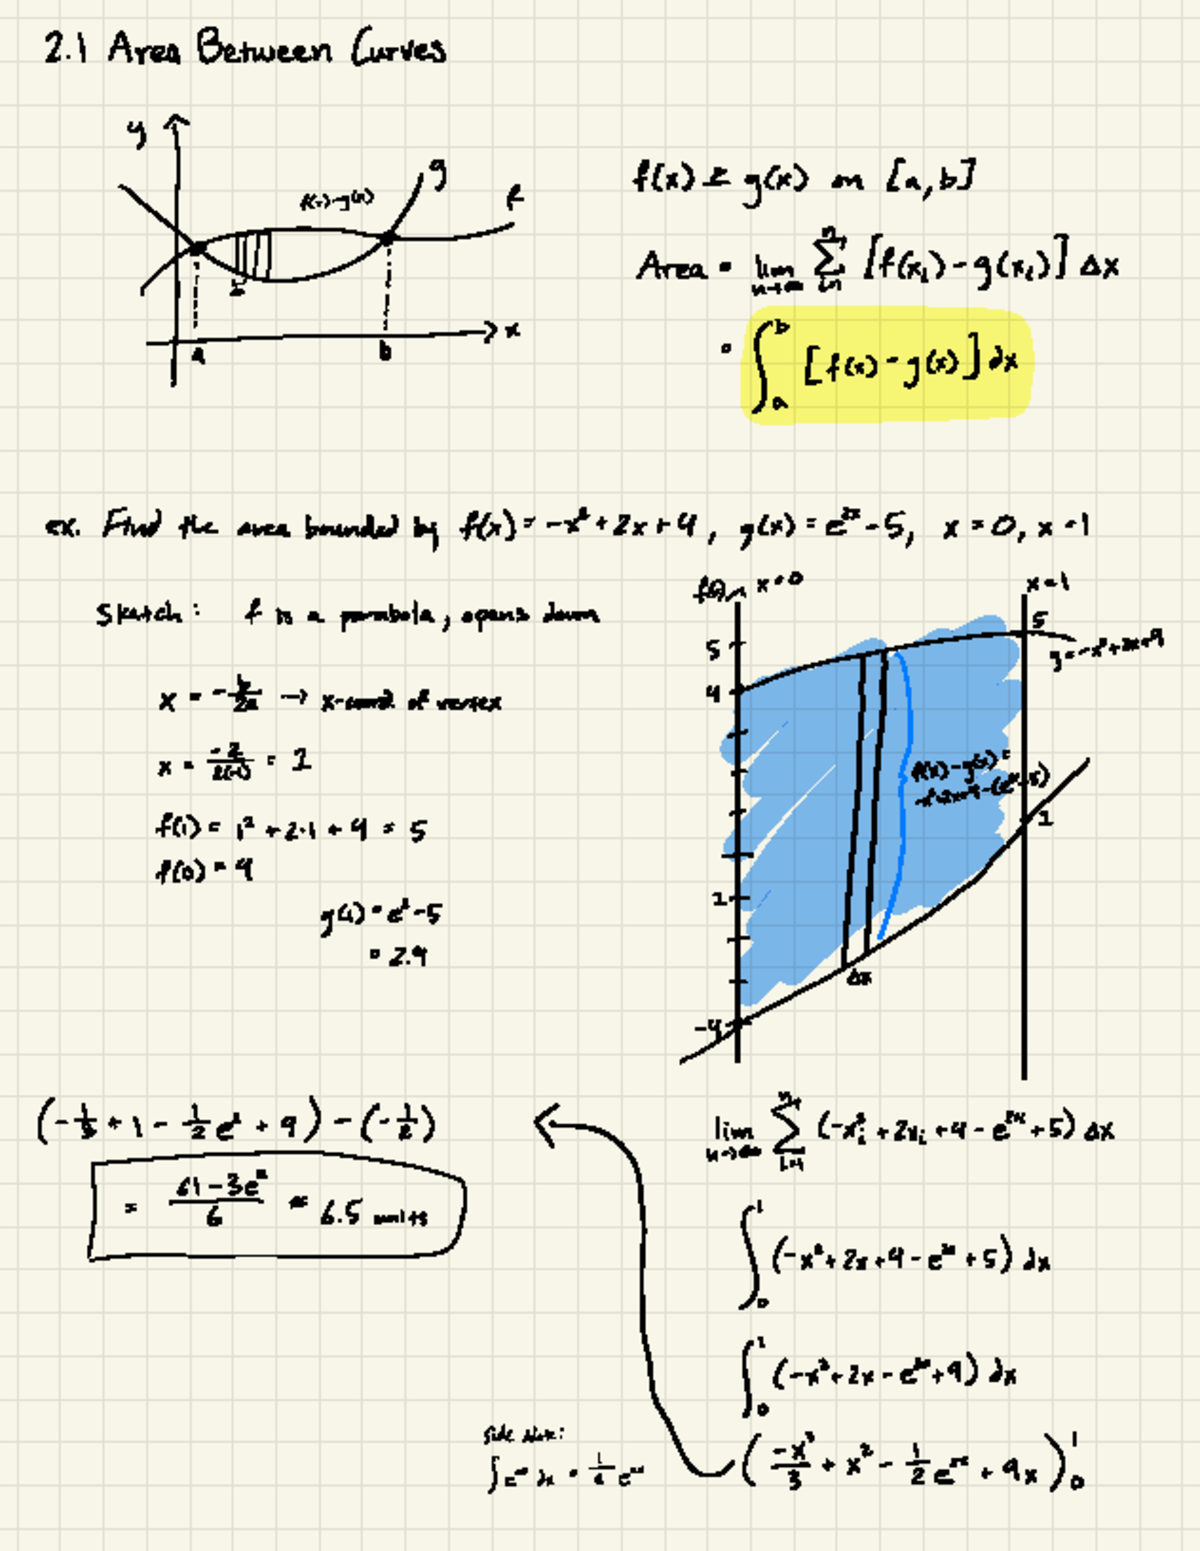 2.1 Area Between Curves
y
g
f
f(x)-g(x)
x
a
b
f(x) ≥ g(x) on [a,b]
Area = lim n→∞ Σ i=1 n [f(xᵢ)-g(xᵢ)] Δx
= ∫ₐᵇ [f(x)-g(x)] dx
ex. Find the area bounded by f(x) = -x²+2x+4, g(x) = e²ˣ-5, x=0, x=1
Sketch: f is a parabola, opens down
x = -b/2a → x-coord of vertex
x = -2/2(-1) = 1
f(1) = 1²+2·1+4 = 5
f(0) = 4
g(1) = e²-5
= 2.4
x=0
x=1
5
5
4
y=-x²+2x+4
f(x)-g(x) =
-x²+2x+4-(e²ˣ-5)
1
1
Δx
-4
(-1/3 + 1 - 1/2 e² + 9) - (-1/2)
= (61-3e²)/6 ≈ 6.5 units
lim n→∞ Σ i=1 n (-xᵢ²+2xᵢ+4-e²ˣ+5) Δx
∫₀¹ (-x²+2x+4-e²ˣ+5) dx
∫₀¹ (-x²+2x-e²ˣ+9) dx
(-x³/3 + x² - 1/2 e²ˣ + 9x)₀¹
side note: